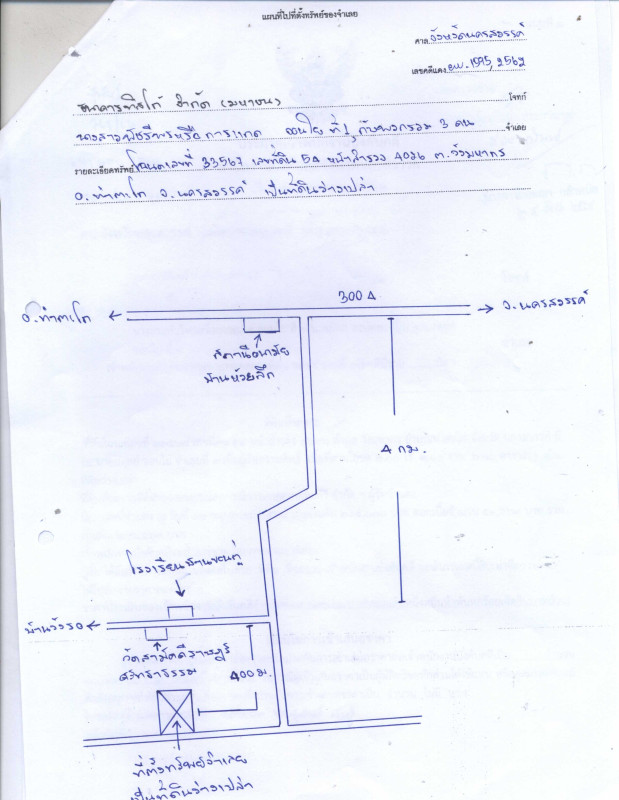 แผนที่ไปที่ตั้งทรัพย์ของจำเลย
ศาล จังหวัดนครสวรรค์
เลขคดีแดง ผบ. 1595/2562
ธนาคารทิสโก้ จำกัด (มหาชน) โจทก์
ที่ 1 กับพวกรวม 3 คน จำเลย
รายละเอียดทรัพย์ โฉนดเลขที่ 33567 เลขที่ดิน 54 หน้าสำรวจ 4026 ต.วังมหากร
อ.ท่าตะโก จ.นครสวรรค์ เป็นที่ดินว่างเปล่า
3004
อ.ท่าตะโก
จ.นครสวรรค์
สถานีอนามัย
บ้านห้วยลึก
4 กม.
โรงเรียน
บ้านวังรอ
วัดสามัคคีราษฎร์
ศรัทธาธรรม
400 ม.
ที่ตั้งทรัพย์จำเลย
เป็นที่ดินว่างเปล่า